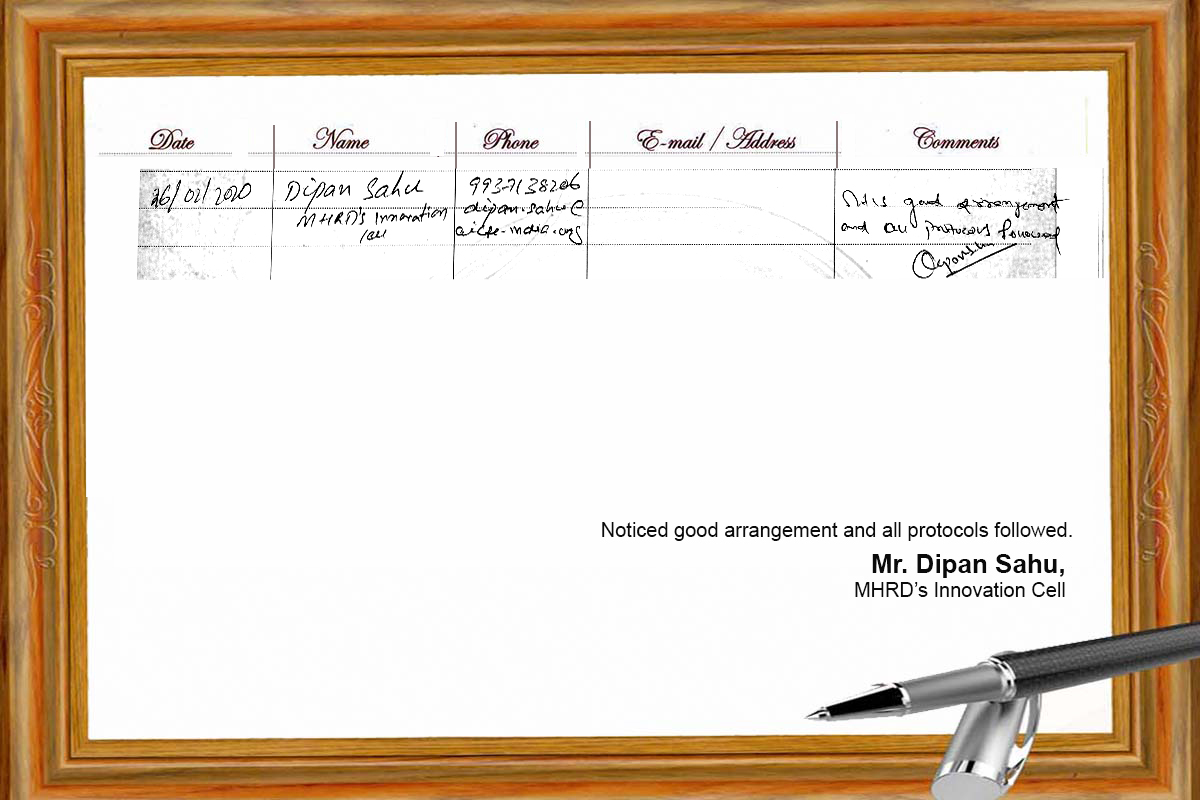 Date Name Phone E-mail / Address Comments
26/02/2020 Dipan Sahu 9937138206
MHRD's Innovation dipan.sahu@ good arrangement
Cell aicte-india.org and all protocols followed
Noticed good arrangement and all protocols followed.
Mr. Dipan Sahu,
MHRD's Innovation Cell